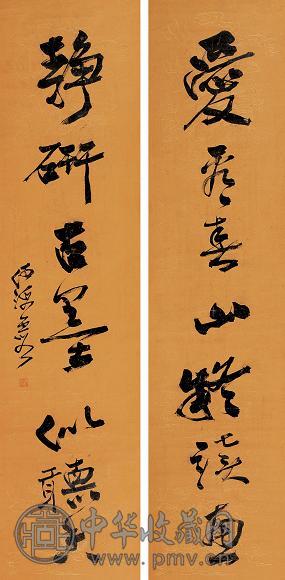 愛看春山疑讀畫
靜研古墨似聽
中华收藏网
www.pmv.cn